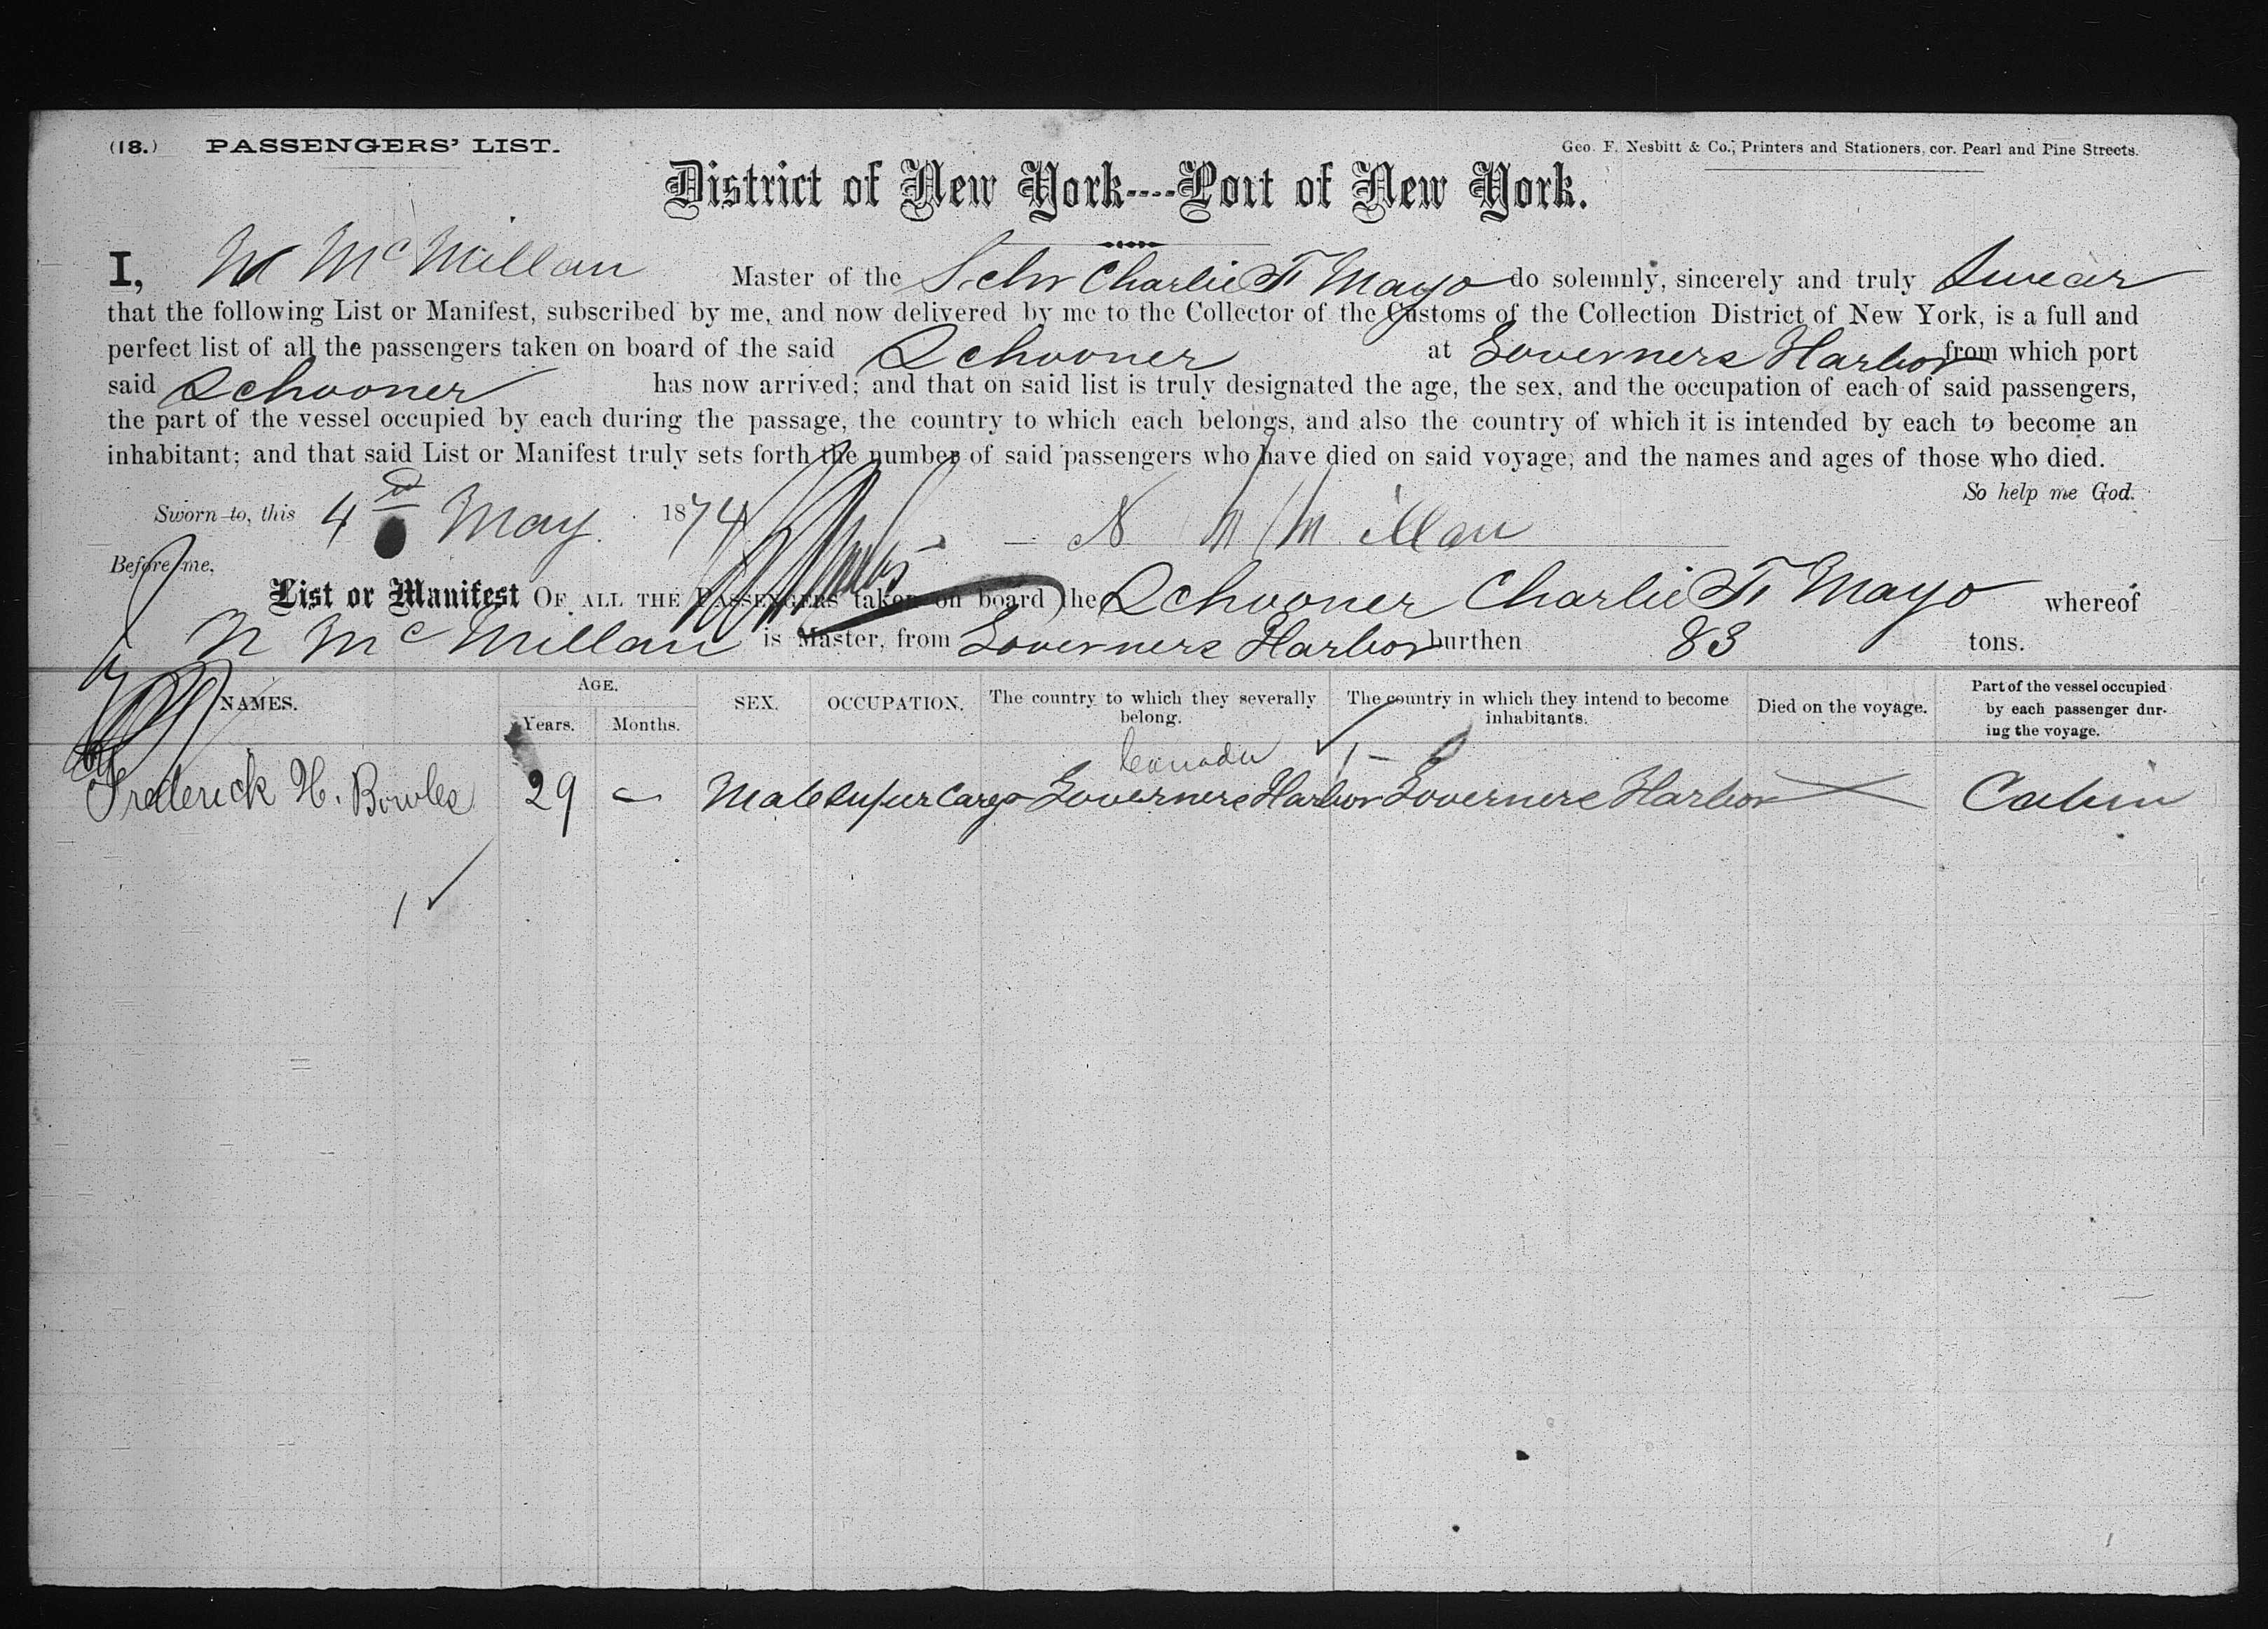 (18.) PASSENGERS' LIST.
Geo. F. Nesbitt & Co., Printers and Stationers, cor. Pearl and Pine Streets.
District of New York----Port of New York.
I, N McMillan Master of the Schr Charlie F. Mayo do solemnly, sincerely and truly Swear
that the following List or Manifest, subscribed by me, and now delivered by me to the Collector of the Customs of the Collection District of New York, is a full and
perfect list of all the passengers taken on board of the said Schooner at Governers Harbor from which port
said Schooner has now arrived; and that on said list is truly designated the age, the sex, and the occupation of each of said passengers,
the part of the vessel occupied by each during the passage, the country to which each belongs, and also the country of which it is intended by each to become an
inhabitant; and that said List or Manifest truly sets forth the number of said passengers who have died on said voyage, and the names and ages of those who died.
So help me God.
Sworn to, this 4 May 1874 N McMillan
Before me,
List or Manifest OF ALL THE PASSENGERS taken on board the Schooner Charlie F. Mayo whereof
N McMillan is Master, from Governers Harbor burthen 83 tons.
NAMES. AGE. Years. Months. SEX. OCCUPATION. The country to which they severally belong. The country in which they intend to become inhabitants. Died on the voyage. Part of the vessel occupied by each passenger during the voyage.
Canada 1 -
Frederick H. Bowles 29 - Male Super Cargo Governers Harbor Governers Harbor Cabin
1 ✓